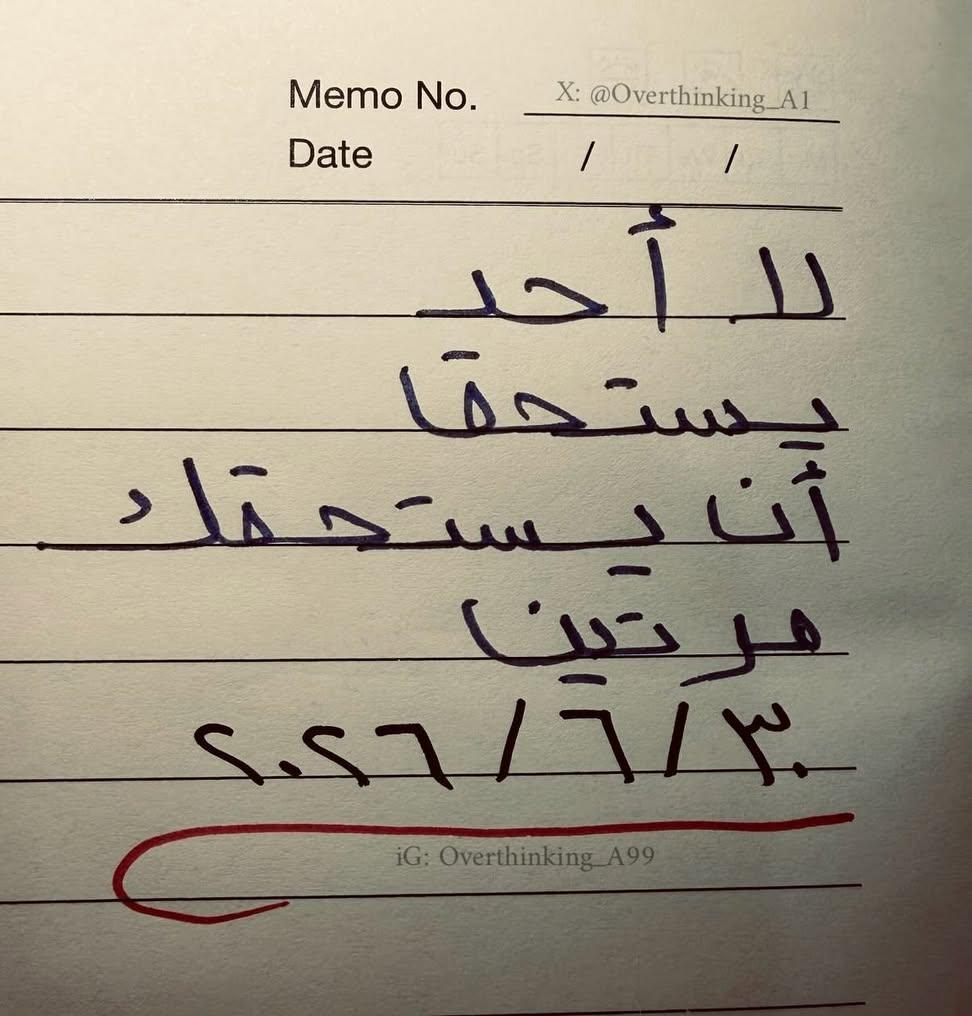 Memo No. X: @Overthinking_A1
Date / /
لا أحد
يستحق
أن يستحقك
مرتين
٢٠٢٦/٦/٣٠
iG: Overthinking_A99